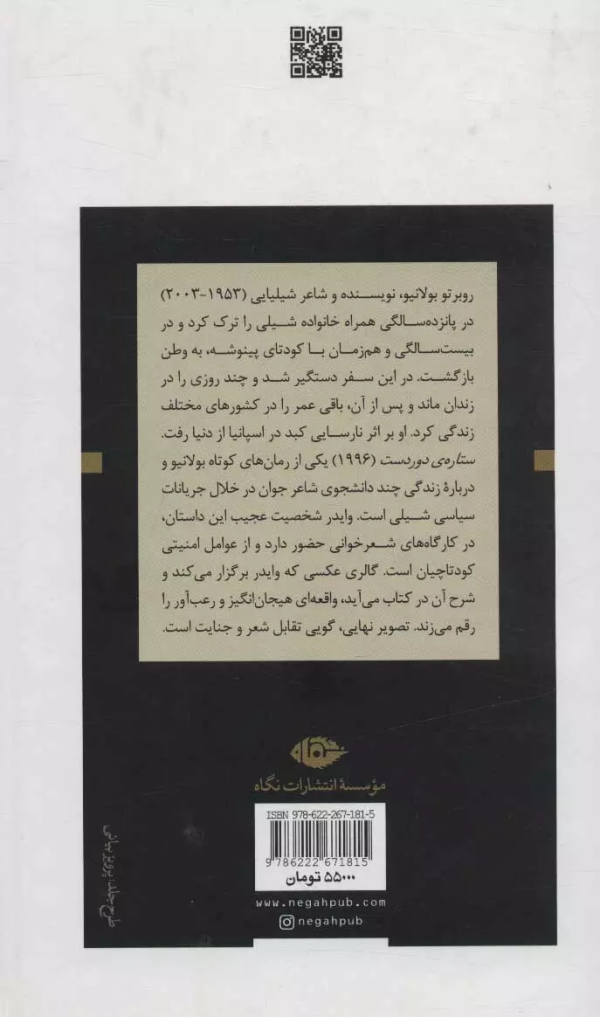 روبرتو بولانیو، نویسنده و شاعر شیلیایی (۱۹۵۳-۲۰۰۳)
در پانزده‌سالگی همراه خانواده شیلی را ترک کرد و در
بیست‌سالگی و هم‌زمان با کودتای پینوشه، به وطن
بازگشت. در این سفر دستگیر شد و چند روزی را در
زندان ماند و پس از آن، باقی عمر را در کشورهای مختلف
زندگی کرد. او بر اثر نارسایی کبد در اسپانیا از دنیا رفت.
ستاره‌ی دوردست (۱۹۹۶) یکی از رمان‌های کوتاه بولانیو و
دربارهٔ زندگی چند دانشجوی شاعر جوان در خلال جریانات
سیاسی شیلی است. وایدر شخصیت عجیب این داستان،
در کارگاه‌های شعرخوانی حضور دارد و از عوامل امنیتی
کودتاچیان است. گالری عکسی که وایدر برگزار می‌کند و
شرح آن در کتاب می‌آید، واقعه‌ای هیجان‌انگیز و رعب‌آور را
رقم می‌زند. تصویر نهایی، گویی تقابل شعر و جنایت است.
نگاه
مؤسسهٔ انتشارات نگاه
ISBN 978-622-267-181-5
9 786222 671815
۵۵۰۰۰ تومان
www.negahpub.com
negahpub
طرح جلد: پرویز بیانی